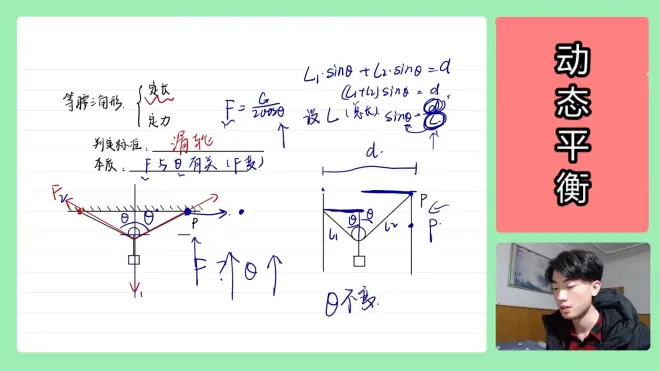 等腰三角形 { 定长
定力
F = G/2cosθ
判定标准: 滑轮
本质: F与θ有关(F变)
L₁·sinθ + L₂·sinθ = d
(L₁+L₂)sinθ = d
设 L (总长) sinθ = d/L
F₂ θ θ P
F?↑ θ↑
d
θ θ P
L₁ L₂ P
θ不变.
动态平衡